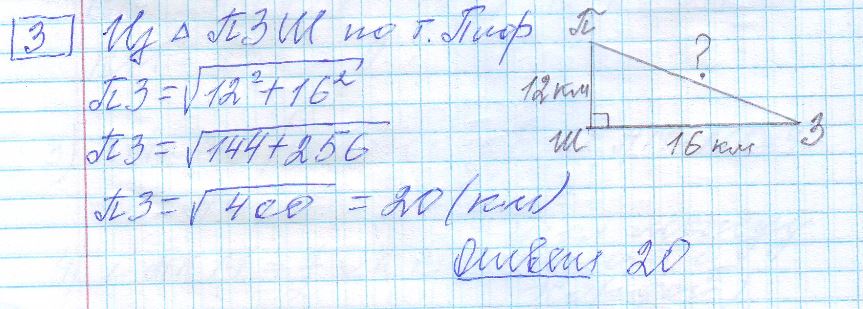 3 Из △ ПЗШ по т. Пиф
ПЗ = √12²+16²
ПЗ = √144+256
ПЗ = √400 = 20 (км)
Ответ 20
П
?
12 км
Ш
16 км
З